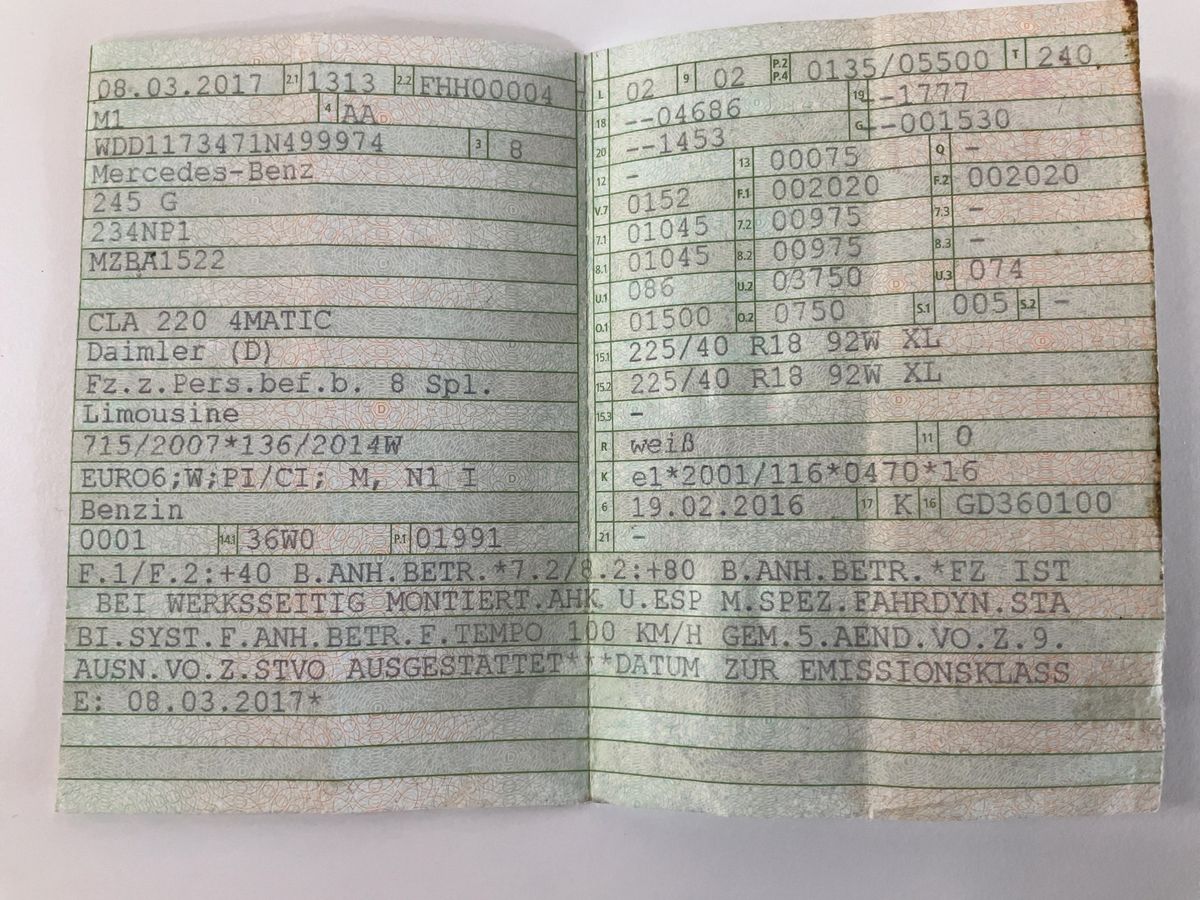 08.03.2017 2.1 1313 2.2 FHH00004
M1 4 AA
WDD1173471N499974 3 8
Mercedes-Benz
245 G
234NP1
MZBA1522
CLA 220 4MATIC
Daimler (D)
Fz.z.Pers.bef.b. 8 Spl.
Limousine
715/2007*136/2014W
EURO6;W;PI/CI; M, N1 I
Benzin
0001 14.1 36W0 P.1 01991
L 02 9 02 P.2 P.4 0135/05500 T 240
18 --04686 19 --1777
20 --1453 G --001530
12 - 13 00075 Q -
V.7 0152 F.1 002020 F.2 002020
7.1 01045 7.2 00975 7.3 -
8.1 01045 8.2 00975 8.3 -
U.1 086 U.2 03750 U.3 074
O.1 01500 O.2 0750 S.1 005 S.2 -
15.1 225/40 R18 92W XL
15.2 225/40 R18 92W XL
15.3 -
R weiß 11 0
K e1*2001/116*0470*16
6 19.02.2016 17 K 16 GD360100
21 -
F.1/F.2:+40 B.ANH.BETR.*7.2/8.2:+80 B.ANH.BETR.*FZ IST
BEI WERKSSEITIG MONTIERT.AHK U.ESP M.SPEZ.FAHRDYN.STA
BI.SYST.F.ANH.BETR.F.TEMPO 100 KM/H GEM.5.AEND.VO.Z.9.
AUSN.VO.Z.STVO AUSGESTATTET***DATUM ZUR EMISSIONSKLASS
E: 08.03.2017*